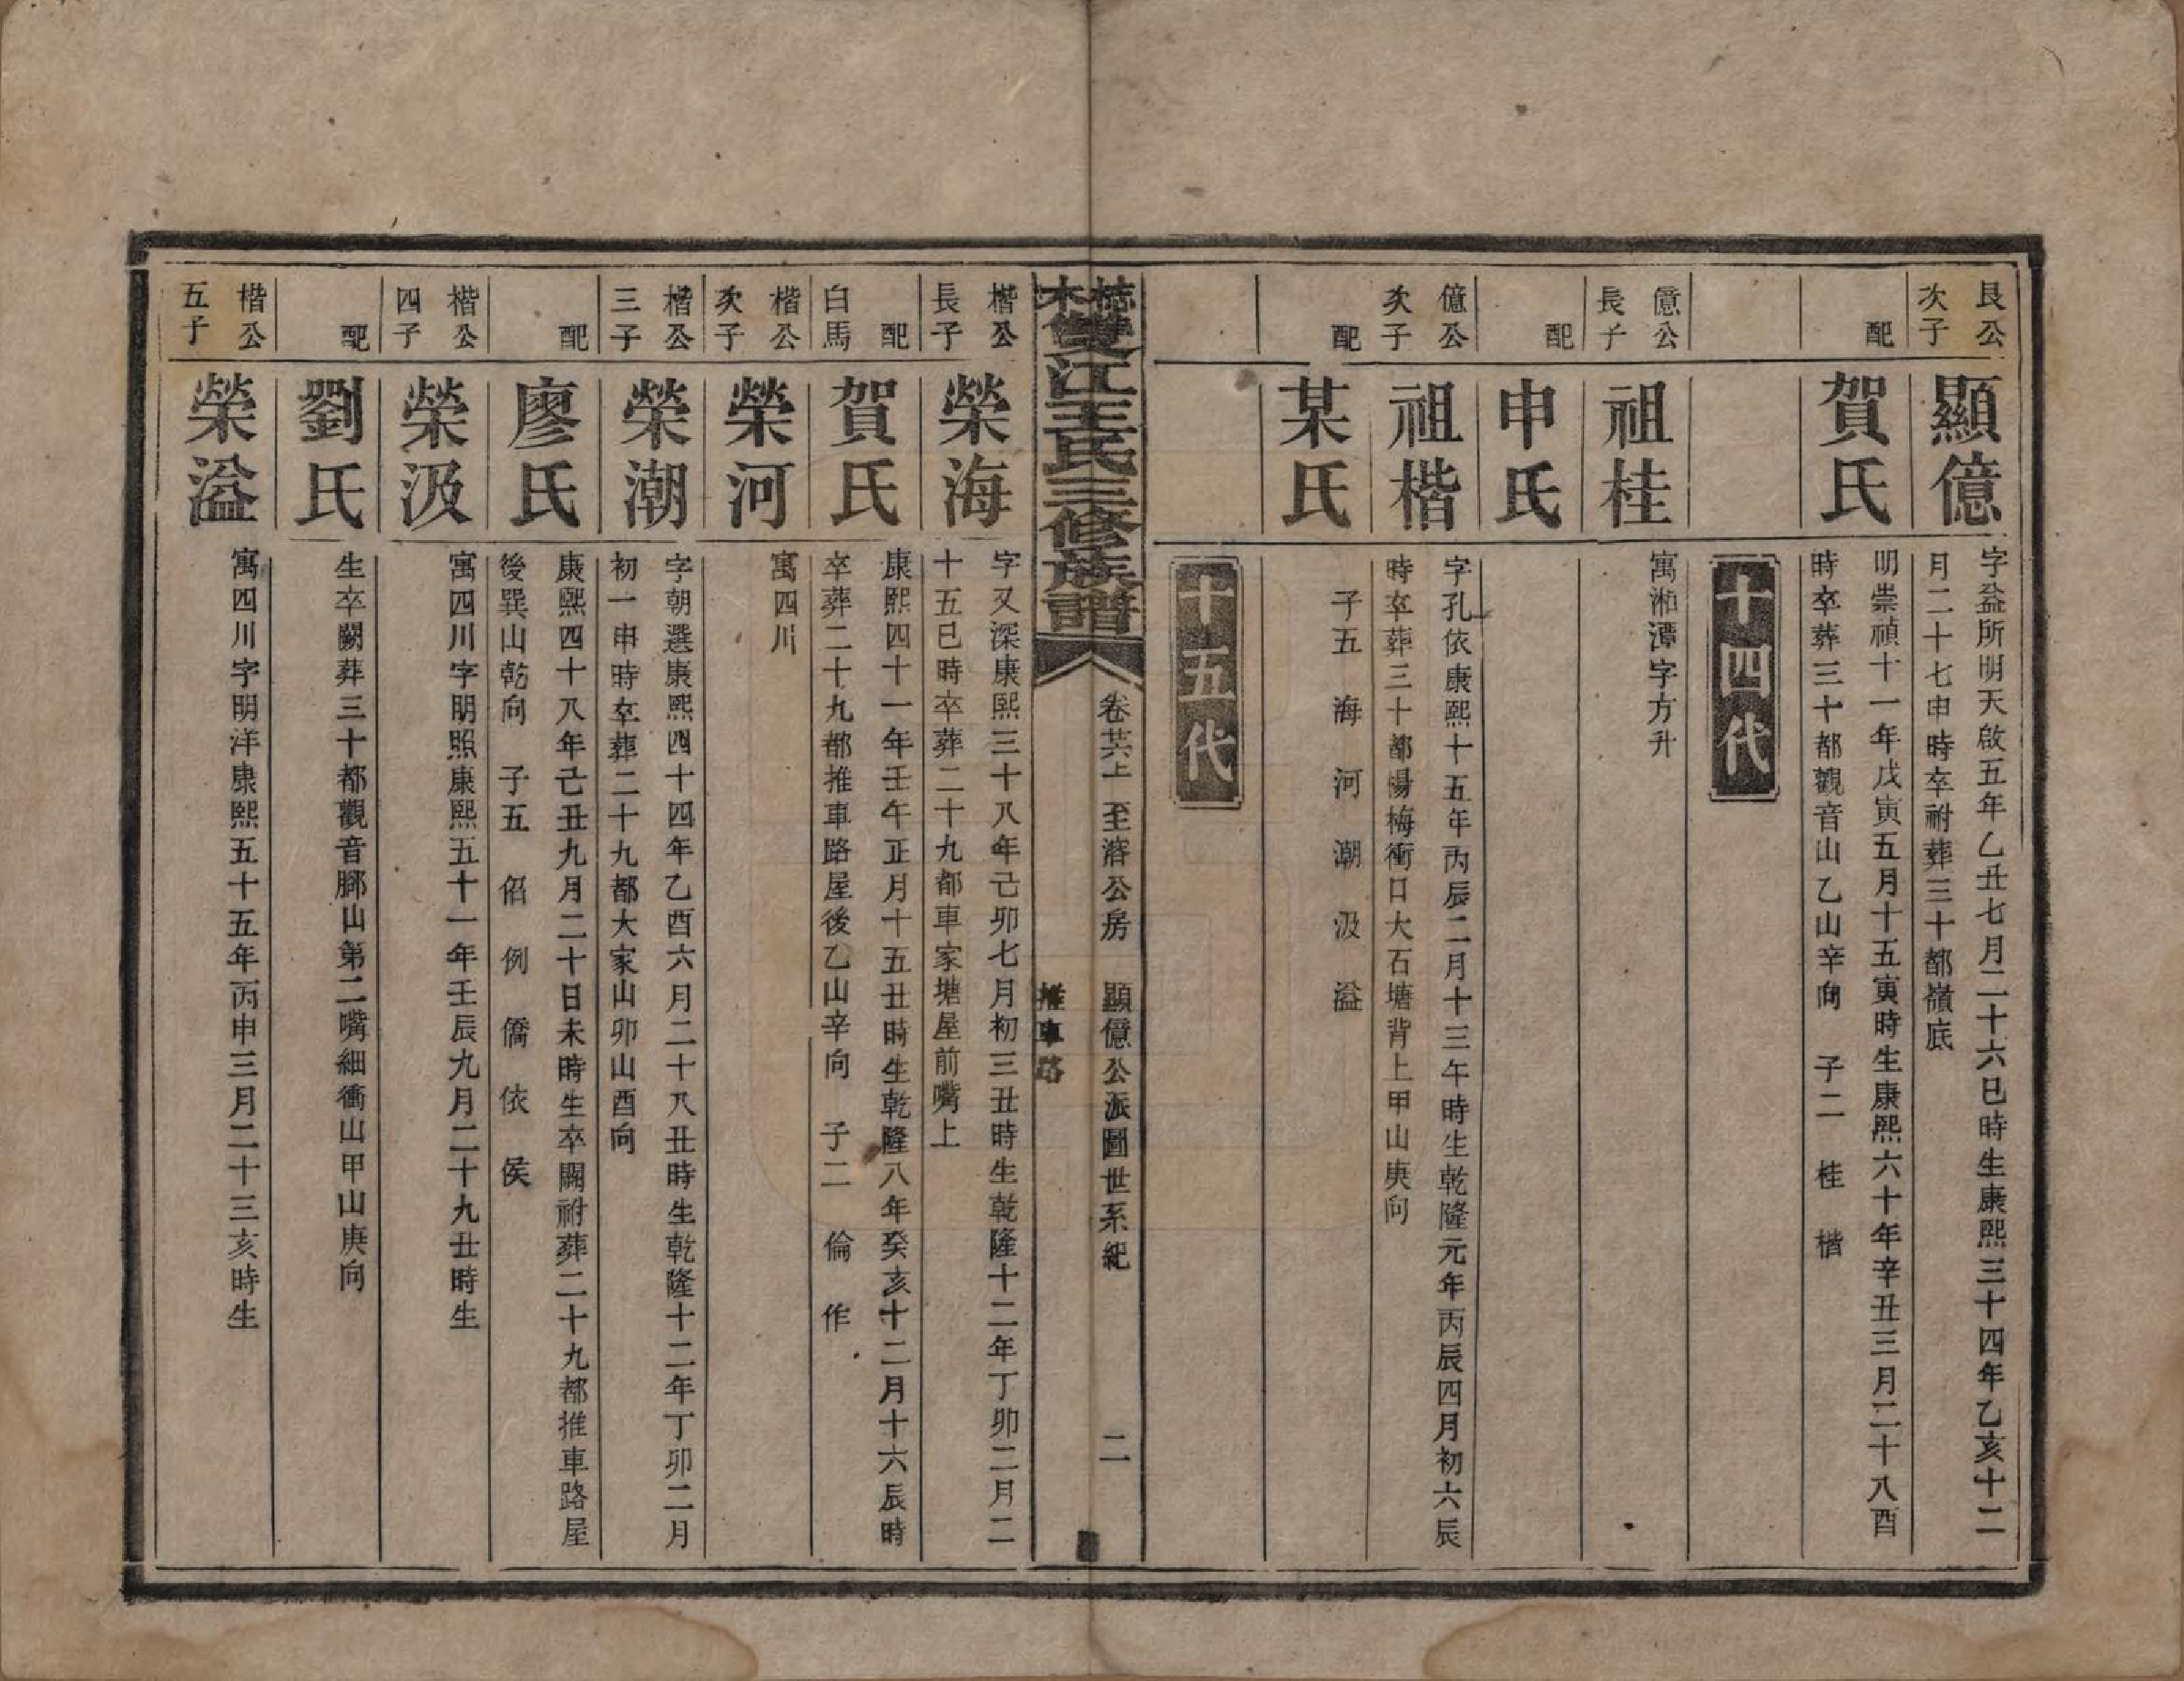 艮公
次子
顯億
字益所明天啟五年乙丑七月二十六巳時生康熙三十四年乙亥十二
月二十七申時卒祔葬三十都嶺底
配
賀氏
明崇禎十一年戊寅五月十五寅時生康熙六十年辛丑三月二十八酉
時卒葬三十都觀音山乙山辛向 子二 桂 楷
十四代
億公
長子
祖桂
寓湘潭字方升
配
申氏
億公
次子
祖楷
字孔依康熙十五年丙辰二月十三午時生乾隆元年丙辰四月初六辰
時卒葬三十都楊梅衝口大石塘背上甲山庚向
配
某氏
子五 海 河 潮 汲 溢
十五代
雙江王氏三修族譜
卷共上 至溶公房 顯億公派圖世系紀
推車路
二
楷公
長子
榮海
字又深康熙三十八年己卯七月初三丑時生乾隆十二年丁卯二月二
十五巳時卒葬二十九都車家塘屋前嘴上
配
白馬
賀氏
康熙四十一年壬午正月十五丑時生乾隆八年癸亥十二月十六辰時
卒葬二十九都推車路屋後乙山辛向 子二 倫 作
楷公
次子
榮河
寓四川
楷公
三子
榮潮
字朝選康熙四十四年乙酉六月二十八丑時生乾隆十二年丁卯二月
初一申時卒葬二十九都大家山卯山酉向
配
廖氏
康熙四十八年己丑九月二十日未時生卒闕祔葬二十九都推車路屋
後巽山乾向 子五 佋 例 僑 依 侯
楷公
四子
榮汲
寓四川字明照康熙五十一年壬辰九月二十九丑時生
配
劉氏
生卒闕葬三十都觀音腳山第二嘴細衝山甲山庚向
楷公
五子
榮溢
寓四川字明洋康熙五十五年丙申三月二十三亥時生